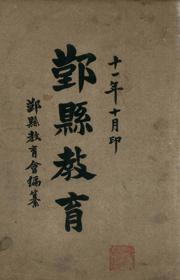 十一年十月印
鄞縣教育
鄞縣教育會編纂